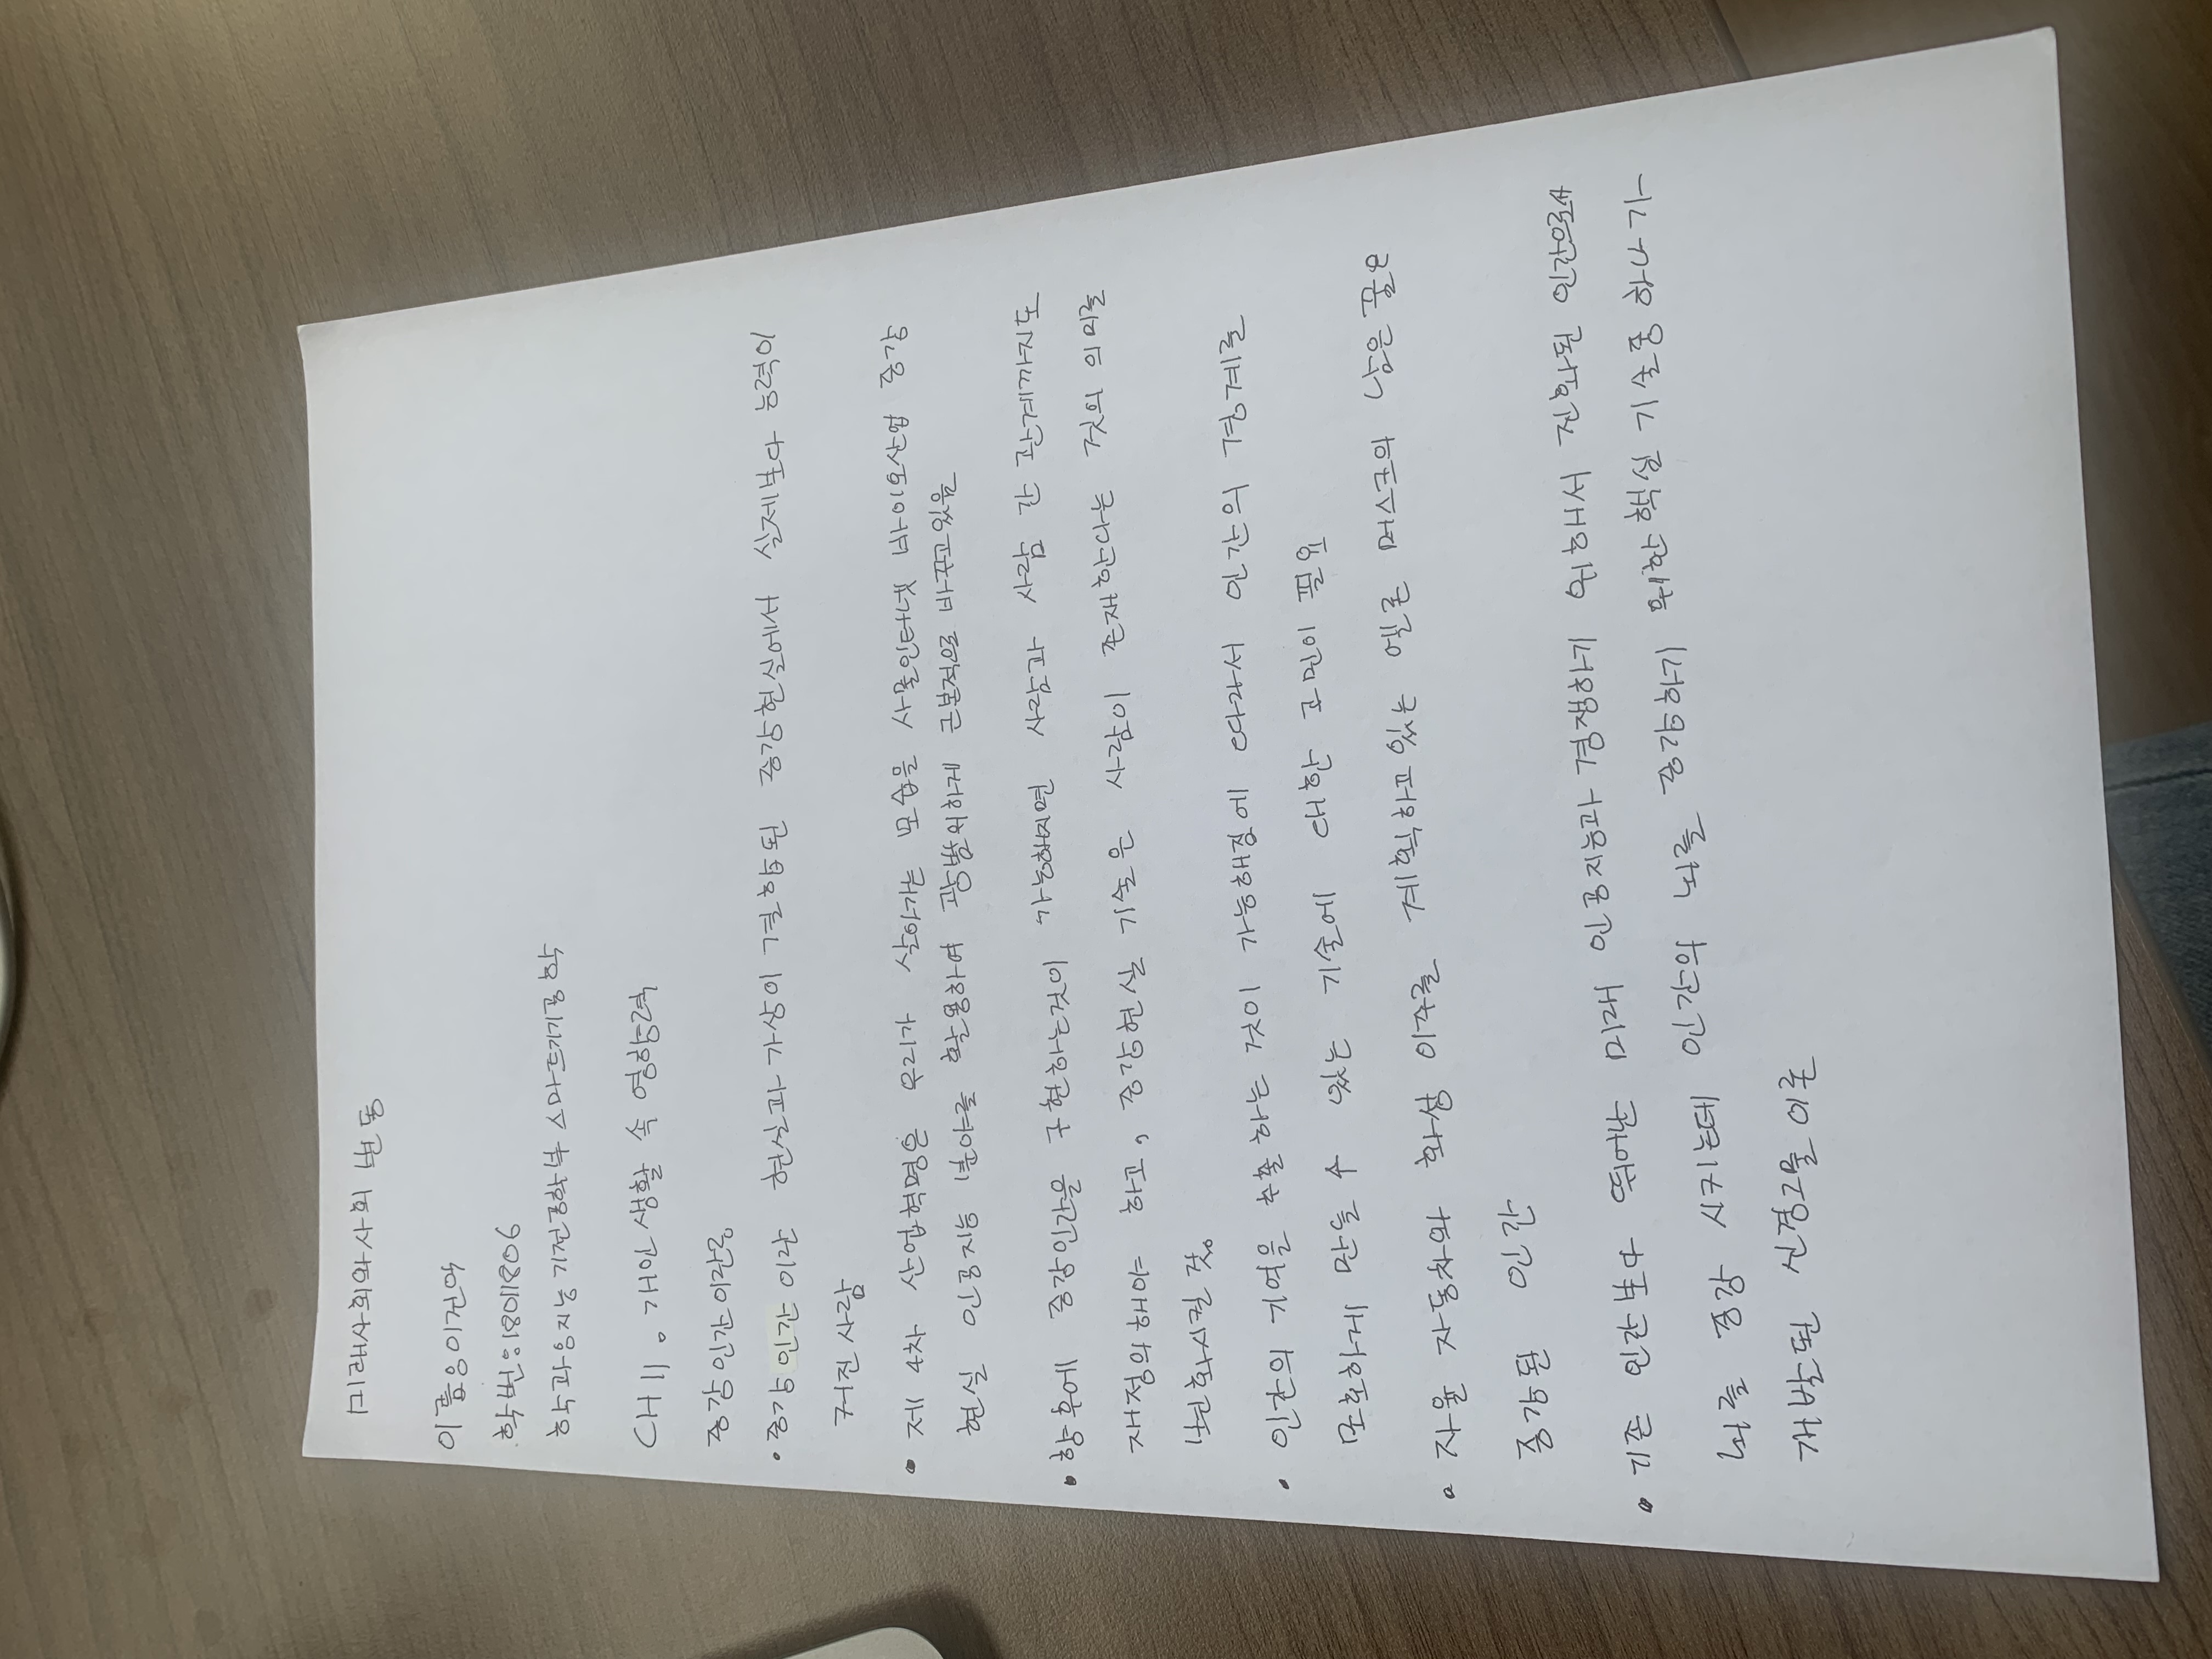 미래사회와사회 변동
이름:이건억
학번:18011806
학과:지능기전공학부 스마트기기공학
CH 11. 개인생활 속 영향력
증강인간이란?
• 증강인간이란 현실과 가상이 결합된 증강현실에서 실제보다 능력이
커진 사람
• 제 4차 산업혁명은 우리가 살아가는 모습을 사물인터넷 바이오산업 증강
현실 인공지능 분야를 활용하여 광범위하게 근본적으로 바꾸고있음
• 향후에 증강인간을 구현하는것이 가능해지면 사람과 사람 간 관계까지도
재정의해야 하고, 증강현실 기술은 사람이 존재한다는 것의 의미를
변화시킬 것.
• 인간의 기억을 추출하는 것이 가능해짐에 따라서 인간의 경계를
모호하게 만들 수 있는 기술에 대한 고민이 필요
• 자율 자동차와 화성 이주를 계획하고있는 엘론 머스크의 남은 꿈은
증강된 인간
• 기존 인간보다 뛰어난 미래 인공지능과 경쟁하기 위해서 진화된 인간으로서
뇌를 증강 시키는데 인간의 뇌를 증강하기 위한핵심 기술중 하나가
개발된 신경그물이론